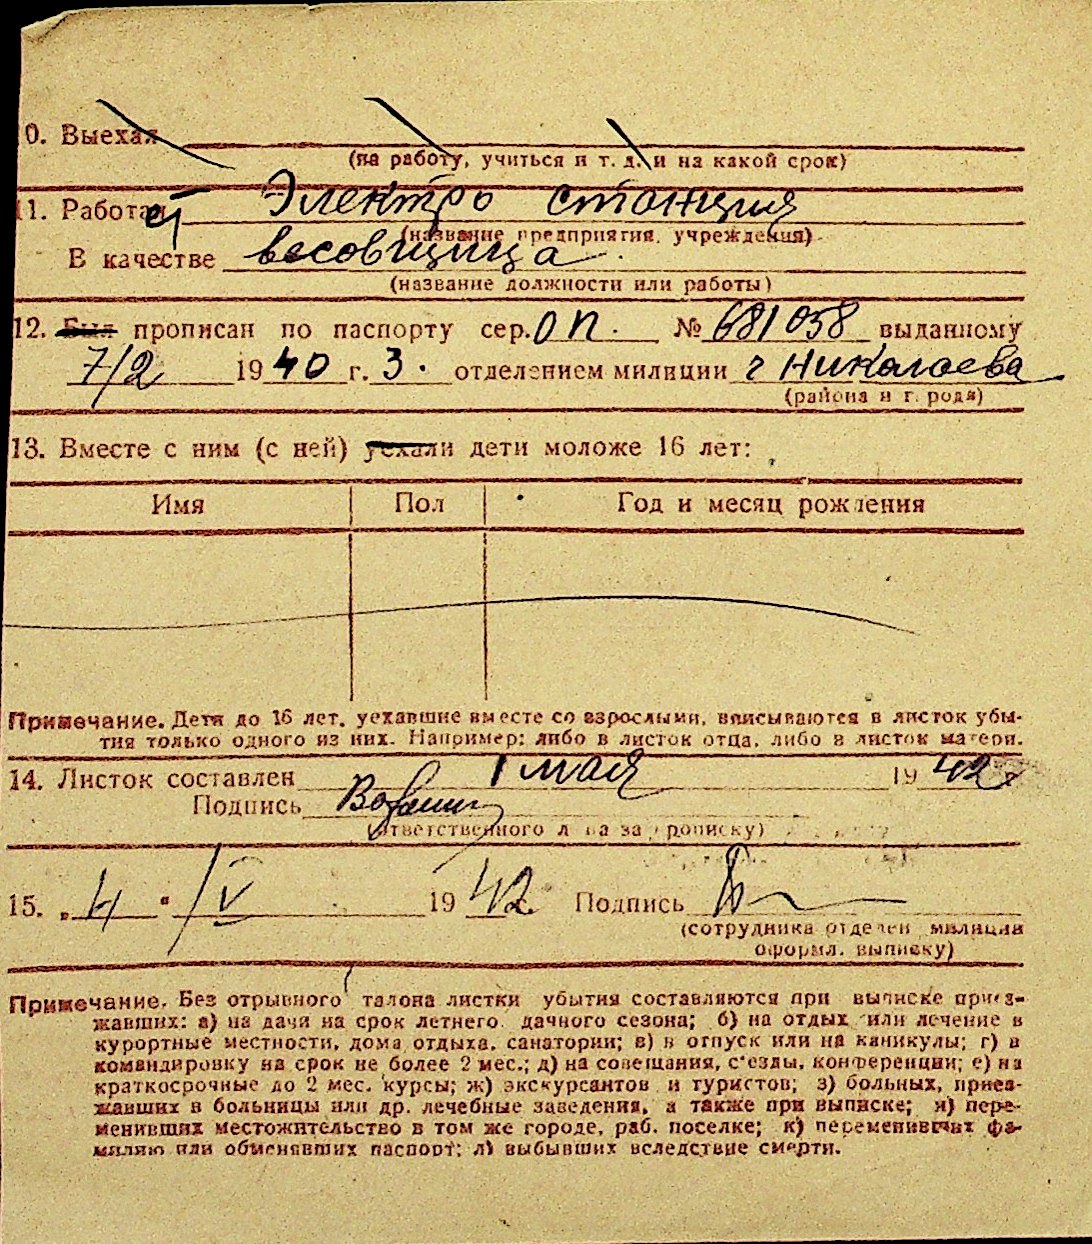 10. Выехал
(на работу, учиться и т. д. и на какой срок)
11. Работает Электро станция
(название предприятия, учреждения)
В качестве весовщица
(название должности или работы)
12. Был прописан по паспорту сер. ОП. № 681058 выданному
7/2 1940 г. 3. отделением милиции г Николаева
(района и города)
13. Вместе с ним (с ней) уехали дети моложе 16 лет:
Имя Пол Год и месяц рождения
Примечание. Дети до 16 лет, уехавшие вместе со взрослыми, вписываются в листок убы-
тия только одного из них. Например: либо в листок отца, либо в листок матери.
14. Листок составлен 1 мая 1942
Подпись
(ответственного лица за прописку)
15. „4" /V 1942 Подпись
(сотрудника отделен милиции
оформл. выписку)
Примечание. Без отрывного талона листки убытия составляются при выписке приез-
жавших: а) на дачи на срок летнего дачного сезона; б) на отдых или лечение в
курортные местности, дома отдыха, санатории; в) в отпуск или на каникулы; г) в
командировку на срок не более 2 мес.; д) на совещания, с'езды, конференции; е) на
краткосрочные до 2 мес. курсы; ж) экскурсантов и туристов; з) больных, приез-
жавших в больницы или др. лечебные заведения, а также при выписке; и) пере-
менивших местожительство в том же городе, раб. поселке; к) переменивших фа-
милию или обменявших паспорт; л) выбывших вследствие смерти.